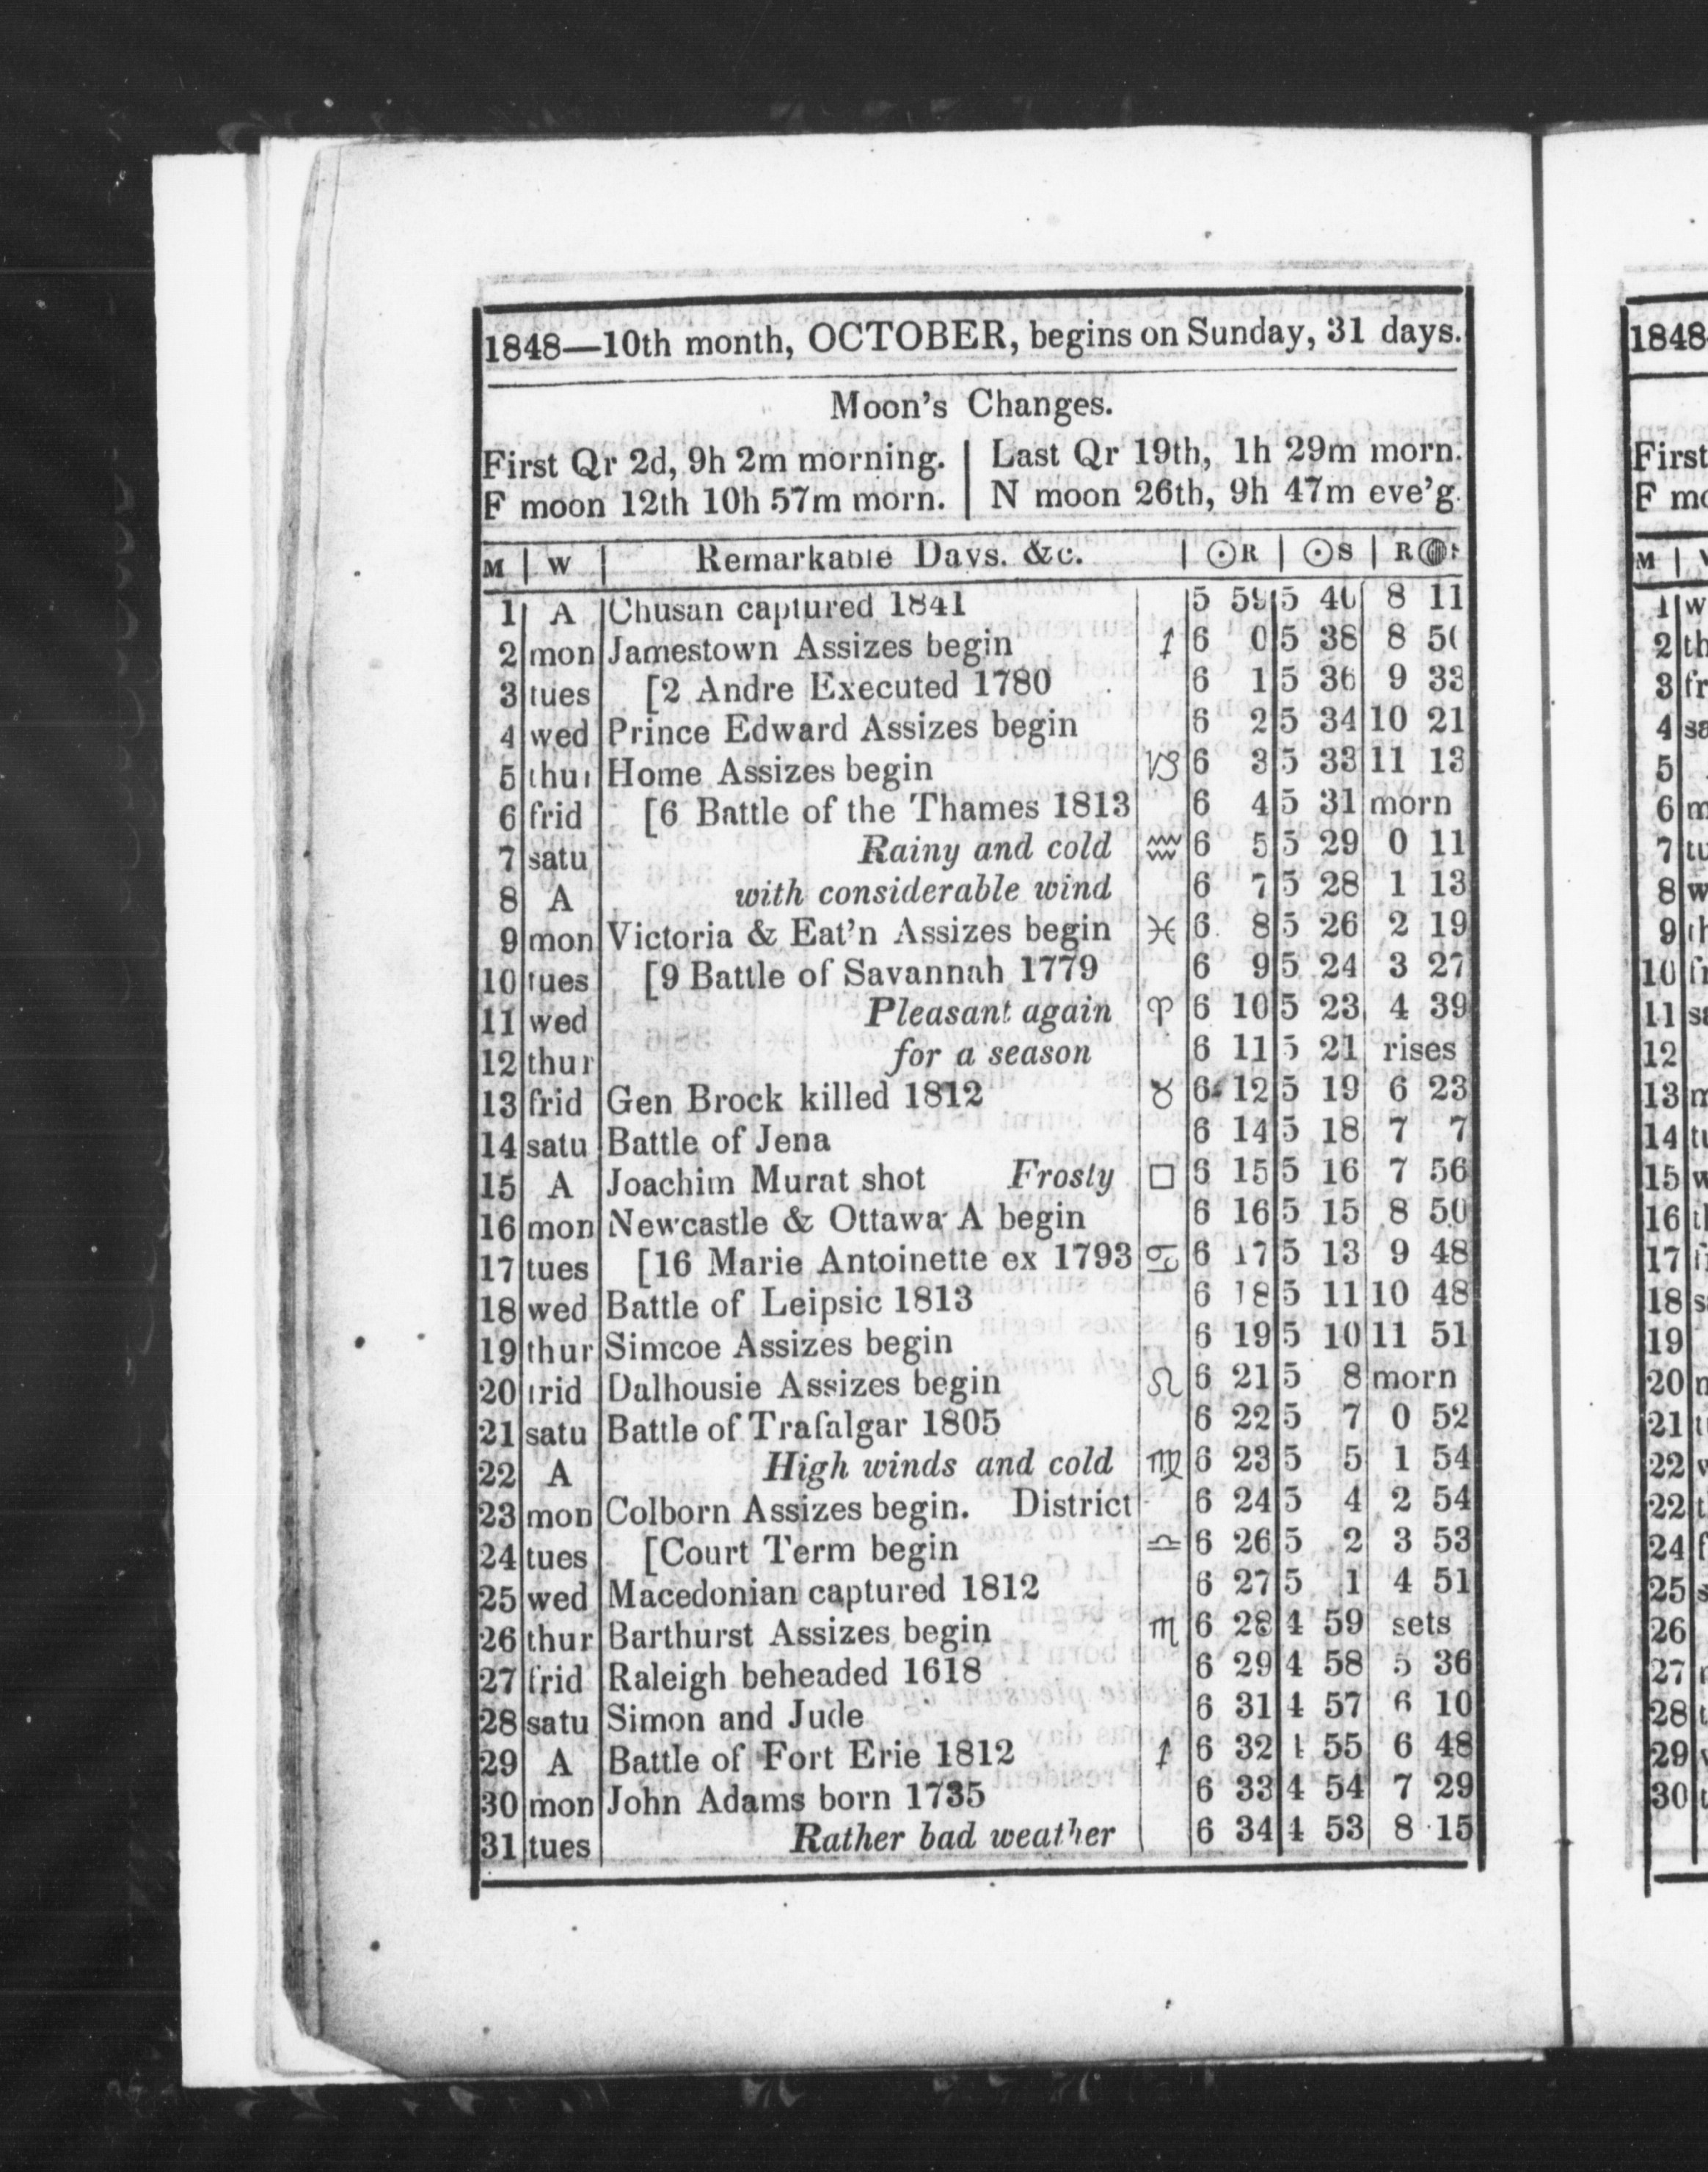 1848—10th month, OCTOBER, begins on Sunday, 31 days.
Moon's Changes.
First Qr 2d, 9h 2m morning. | Last Qr 19th, 1h 29m morn.
F moon 12th 10h 57m morn. | N moon 26th, 9h 47m eve'g.
M | W | Remarkable Days. &c. | ☉R | ☉S | R
1 A Chusan captured 1841 5 59 5 40 8 11
2 mon Jamestown Assizes begin ♐ 6 0 5 38 8 50
3 tues [2 Andre Executed 1780 6 1 5 36 9 33
4 wed Prince Edward Assizes begin 6 2 5 34 10 21
5 thur Home Assizes begin ♑ 6 3 5 33 11 13
6 frid [6 Battle of the Thames 1813 6 4 5 31 morn
7 satu Rainy and cold ♒ 6 5 5 29 0 11
8 A with considerable wind 6 7 5 28 1 13
9 mon Victoria & Eat'n Assizes begin ♓ 6 8 5 26 2 19
10 tues [9 Battle of Savannah 1779 6 9 5 24 3 27
11 wed Pleasant again ♈ 6 10 5 23 4 39
12 thur for a season 6 11 5 21 rises
13 frid Gen Brock killed 1812 ♉ 6 12 5 19 6 23
14 satu Battle of Jena 6 14 5 18 7 7
15 A Joachim Murat shot Frosty □ 6 15 5 16 7 56
16 mon Newcastle & Ottawa A begin 6 16 5 15 8 50
17 tues [16 Marie Antoinette ex 1793 ♋ 6 17 5 13 9 48
18 wed Battle of Leipsic 1813 6 18 5 11 10 48
19 thur Simcoe Assizes begin 6 19 5 10 11 51
20 frid Dalhousie Assizes begin ♌ 6 21 5 8 morn
21 satu Battle of Trafalgar 1805 6 22 5 7 0 52
22 A High winds and cold ♍ 6 23 5 5 1 54
23 mon Colborn Assizes begin. District 6 24 5 4 2 54
24 tues [Court Term begin ♎ 6 26 5 2 3 53
25 wed Macedonian captured 1812 6 27 5 1 4 51
26 thur Barthurst Assizes begin ♏ 6 28 4 59 sets
27 frid Raleigh beheaded 1618 6 29 4 58 5 36
28 satu Simon and Jude 6 31 4 57 6 10
29 A Battle of Fort Erie 1812 ♐ 6 32 4 55 6 48
30 mon John Adams born 1735 6 33 4 54 7 29
31 tues Rather bad weather 6 34 4 53 8 15
1848
First
F
M
1
2
3
4
5
6
7
8
9
10
11
12
13
14
15
16
17
18
19
20
21
22
22
24
25
26
27
28
29
30